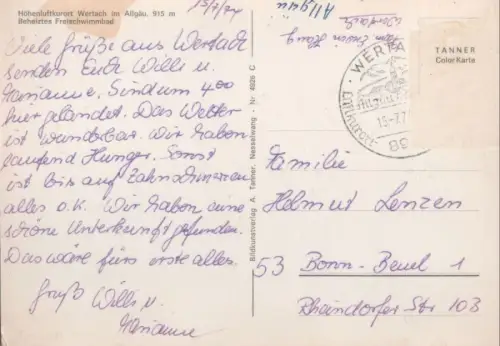 Höhenluftkurort Wertach im Allgäu. 915 m
Beheiztes Freischwimmbad
15/7/74
Viele Grüße aus Wertach
senden Euch Willi u.
Marianne. Sind um 4.00
hier gelandet. Das Wetter
ist wunderbar. Wir haben
laufend Hunger. Sonst
ist bis auf Zahnschmerzen
alles o.k. Wir haben eine
schöne Unterkunft gefunden.
Das wäre fürs erste alles.
Gruß Willi u.
Marianne
Bildkunstverlag A. Tanner, Nesselwang - Nr 4926 C
Allgäu
Wertach
Haug
WERTA
Allgäu
Luftkurort
15.-7.7
89
TANNER
ColorKarte
Familie
Helmut Lenzen
53 Bonn-Beuel 1
Rheindorfer Str 103